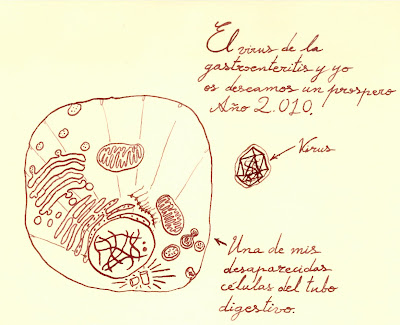 El virus de la
gastroenteritis y yo
os deseamos un prospero
Año 2.010.
Virus
Una de mis
desaparecidas
células del tubo
digestivo.